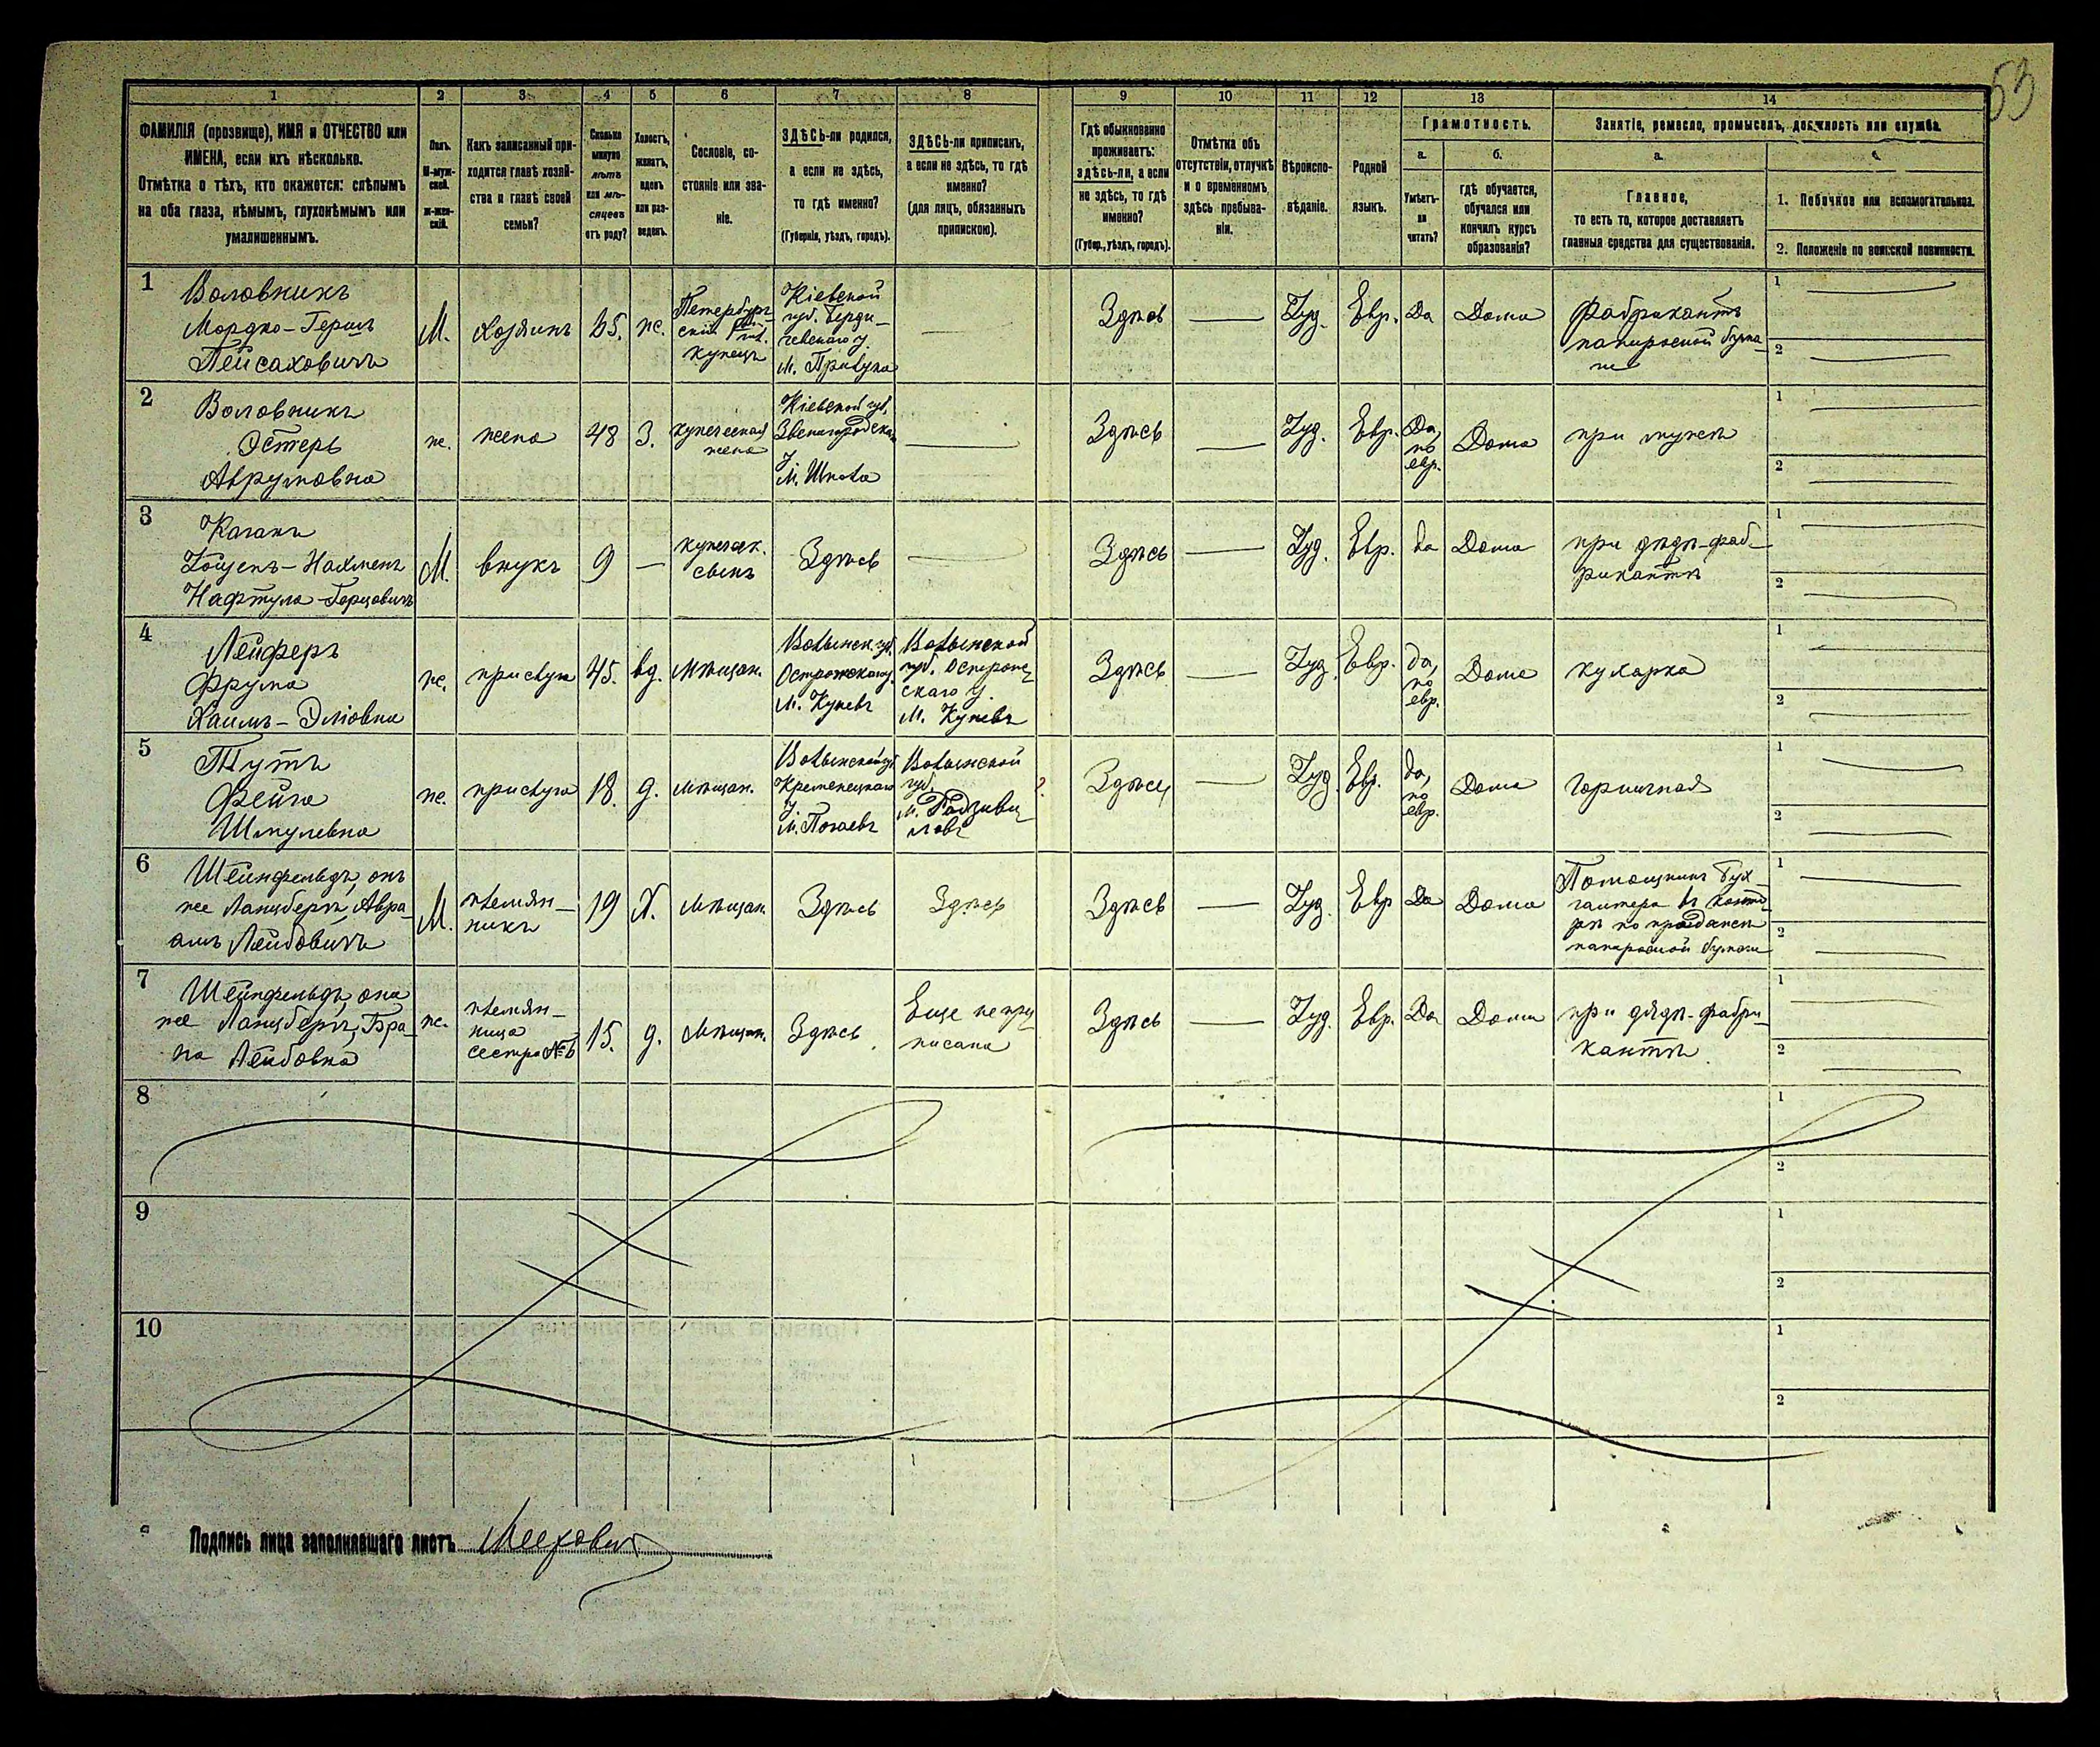 53
1 2 3 4 5 6 7 8 9 10 11 12 13 14
ФАМИЛІЯ (прозвище), ИМЯ и ОТЧЕСТВО или
ИМЕНА, если ихъ нѣсколько.
Отмѣтка о тѣхъ, кто окажется: слѣпымъ
на оба глаза, нѣмымъ, глухонѣмымъ или
умалишеннымъ.
Полъ.
М-муж-
ской.
ж-жен-
скій.
Какъ записанный при-
ходится главѣ хозяй-
ства и главѣ своей
семьи?
Сколько
минуло
лѣтъ
или мѣ-
сяцевъ
отъ роду?
Холостъ,
женатъ,
вдовъ
или раз-
веденъ.
Сословіе, со-
стояніе или зва-
ніе.
ЗДѢСЬ-ли родился,
а если не здѣсь,
то гдѣ именно?
(Губернія, уѣздъ, городъ).
ЗДѢСЬ-ли приписанъ,
а если не здѣсь, то гдѣ
именно?
(для лицъ, обязанныхъ
припискою).
Гдѣ обыкновенно
проживаетъ:
здѣсь-ли, а если
не здѣсь, то гдѣ
именно?
(Губер., уѣздъ, городъ).
Отмѣтка объ
отсутствіи, отлучкѣ
и о временномъ
здѣсь пребыва-
ніи.
Вѣроиспо-
вѣданіе.
Родной
языкъ.
Грамотность.
а.
Умѣетъ-
ли
читать?
б.
гдѣ обучается,
обучался или
кончилъ курсъ
образованія?
Занятіе, ремесло, промыселъ, должность или служба.
а.
Главное,
то есть то, которое доставляетъ
главныя средства для существованія.
1. Побочное или вспомогательное.
2. Положеніе по воинской повинности.
1
Воловникъ
Мордко-Гершъ
Пейсаховичъ
М.
хозяинъ
ж.
Петербург-
скій
купецъ
Кіевской
губ. Берди-
чевскаго у.
м. Прилука
Здѣсь
Іуд.
Евр.
Да
Дома
Фабрикантъ
папиросной бума-
ги
1
2
2
Воловникъ
Эстеръ
Аврумовна
ж.
жена
48
З.
купеческая
жена
Кіевской губ.
Звенигородскаго
у.
м. Шпола
Здѣсь
Іуд.
Евр.
Да,
по
евр.
Дома
при мужѣ
1
2
3
Каганъ
Нафтула-Герцовичъ
М.
внукъ
9
купеческ.
сынъ
Здѣсь
Здѣсь
Іуд.
Евр.
да
Дома
при дѣдѣ-фаб-
рикантѣ
1
2
4
Лейферъ
Фрума
Хаимъ-Эліовна
ж.
прислуга
45.
вд.
мѣщан.
Волынск. губ.
Острожскаго у.
м. Куневъ
Волынской
губ. Острож-
скаго у.
м. Куневъ
Здѣсь
Іуд.
Евр.
да,
по
евр.
Дома
кухарка
1
2
5
Тутъ
Фейга
Шмулевна
ж.
прислуга
18.
д.
мѣщан.
Волынской губ.
Кременецкаго
у.
м. Почаевъ
Волынской
губ.
м. Радзиви-
ловъ
?
Здѣсь
Іуд.
Евр.
да,
по
евр.
Дома
горничная
1
2
6
Шейнфельдъ, онъ
же Ланцбергъ, Авра-
амъ Лейбовичъ
М.
племян-
никъ
19
Х.
мѣщан.
Здѣсь
Здѣсь
Здѣсь
Іуд.
Евр
Да
Дома
Помощникъ бух-
галтера въ конто-
рѣ по продажѣ
папиросной бумаги
1
2
7
Шейнфельдъ, она
же Ланцбергъ, Бра-
на Лейбовна
ж.
племян-
ница
сестра №6
15.
д.
мѣщан.
Здѣсь
Еще не при-
писана
Здѣсь
Іуд.
Евр.
Да
Дома
при дядѣ-фабри-
кантѣ.
1
2
8
1
2
9
1
2
10
1
2
Подпись лица заполнявшаго листъ